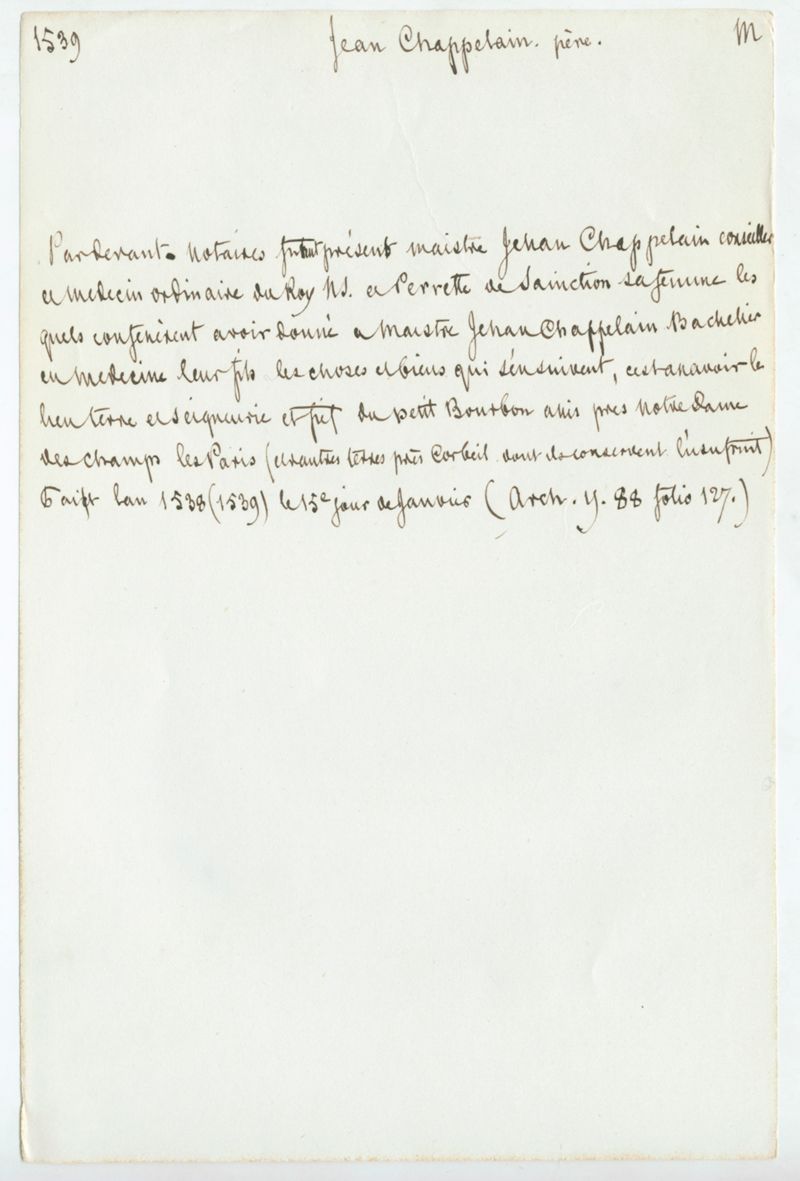 1539 Jean Chappelain. père. M
Pardevant notaires fut présent maistre Jehan Chappelain conseiller
et medecin ordinaire du Roy NS. et Perrette de Sainction sa femme les
quels confessèrent avoir donné a Maistre Jehan Chappelain Bachelier
en Medecine leur fils les choses et biens qui s'ensuivent, cest asavoir le
lieu terre et seigneurie et fief du petit Bourbon assis pres Notre Dame
des champs les Paris (et autres terres près Corbeil dont ils conservent l'usufruit)
Faict lan 1538 (1539) le 15e jour de Janvier (Arch. Y. 88 folio 127.)